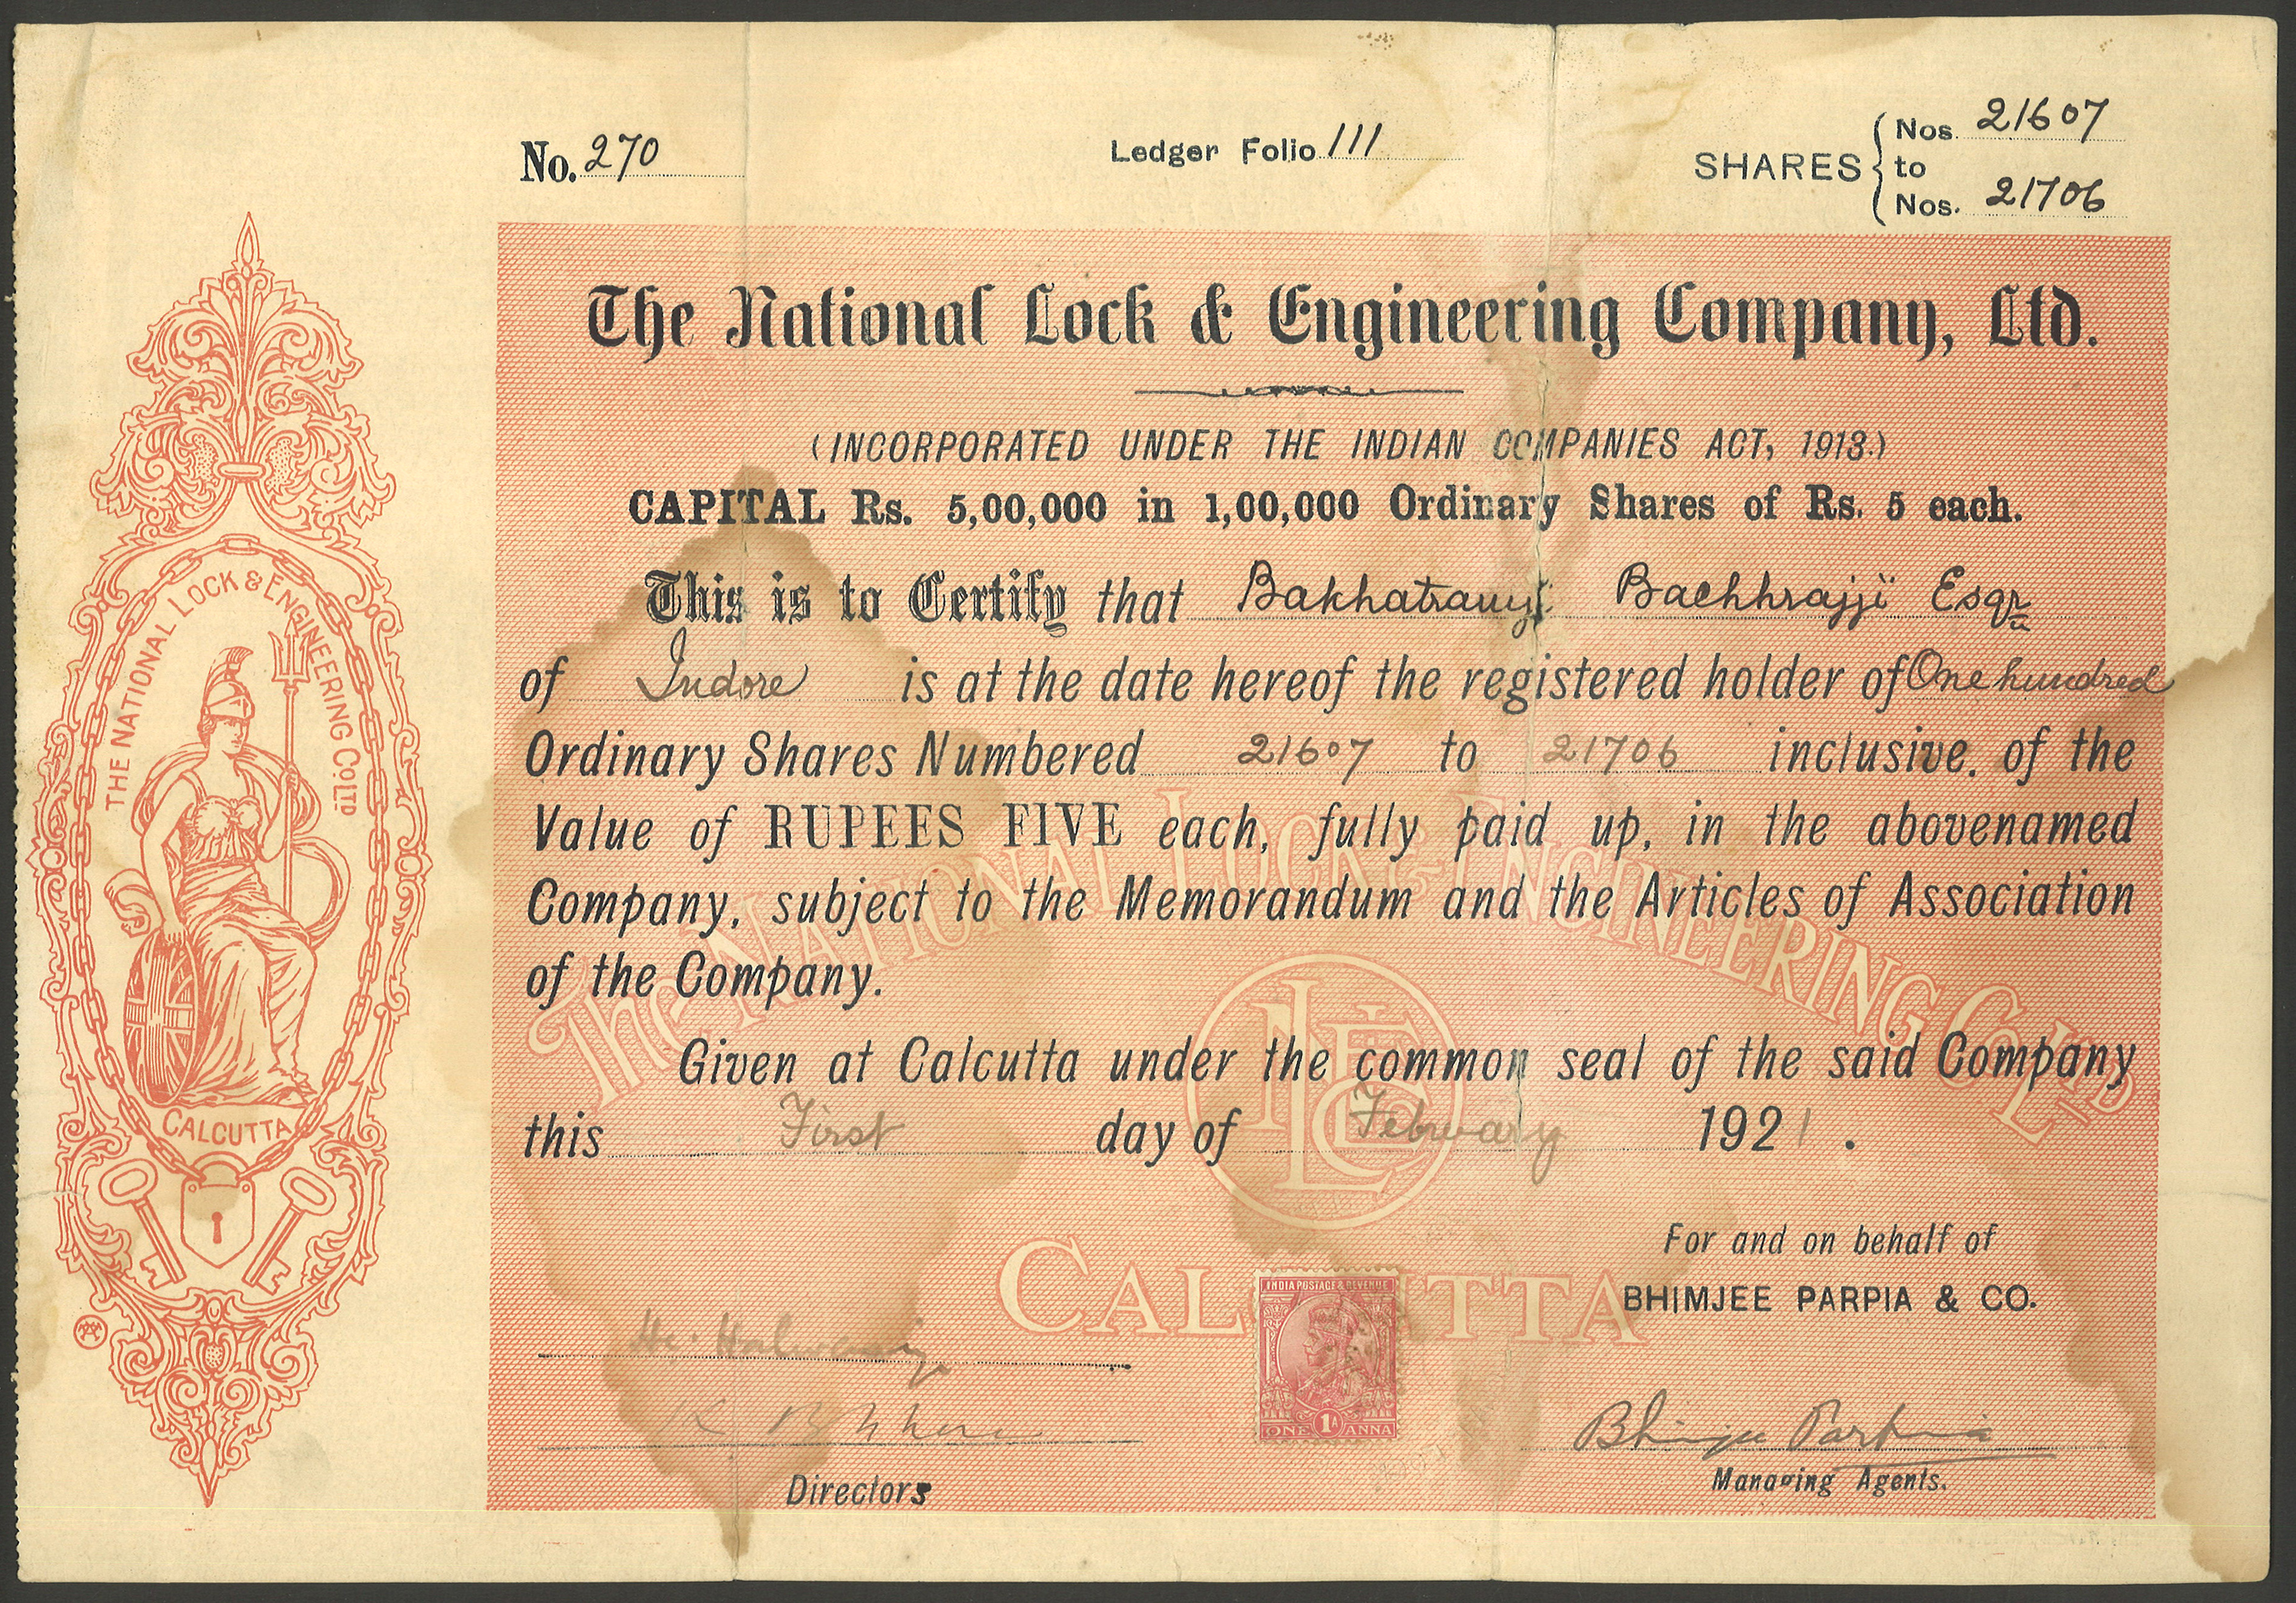 No. 270
Ledger Folio 111
SHARES { Nos. 21607
to
Nos. 21706
The National Lock & Engineering Company, Ltd.
(INCORPORATED UNDER THE INDIAN COMPANIES ACT, 1913.)
CAPITAL Rs. 5,00,000 in 1,00,000 Ordinary Shares of Rs. 5 each.
This is to Certify that Bachhrajji Esqr
of Indore is at the date hereof the registered holder of One hundred
Ordinary Shares Numbered 21607 to 21706 inclusive. of the
Value of RUPEES FIVE each, fully paid up, in the abovenamed
Company, subject to the Memorandum and the Articles of Association
of the Company.
Given at Calcutta under the common seal of the said Company
this First day of February 1921.
For and on behalf of
BHIMJEE PARPIA & CO.
Bhimjee Parpia
Directors
Managing Agents.
THE NATIONAL LOCK & ENGINEERING CO. LTD
CALCUTTA
The NATIONAL LOCK & ENGINEERING CO. LTD
CALCUTTA
INDIA POSTAGE & REVENUE
1A
ONE ANNA